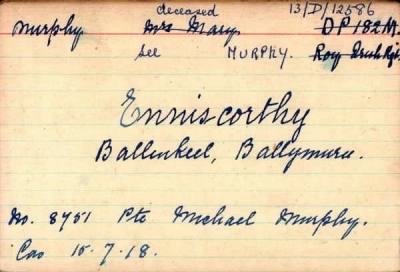 deceased 13/D/12586
Murphy Mrs Mary DP 182M.
See MURPHY. Roy Irish Rgt.
Enniscorthy
Ballinkeel, Ballymurn.
No. 8751 Pte Michael Murphy.
Cas 15.7.18.